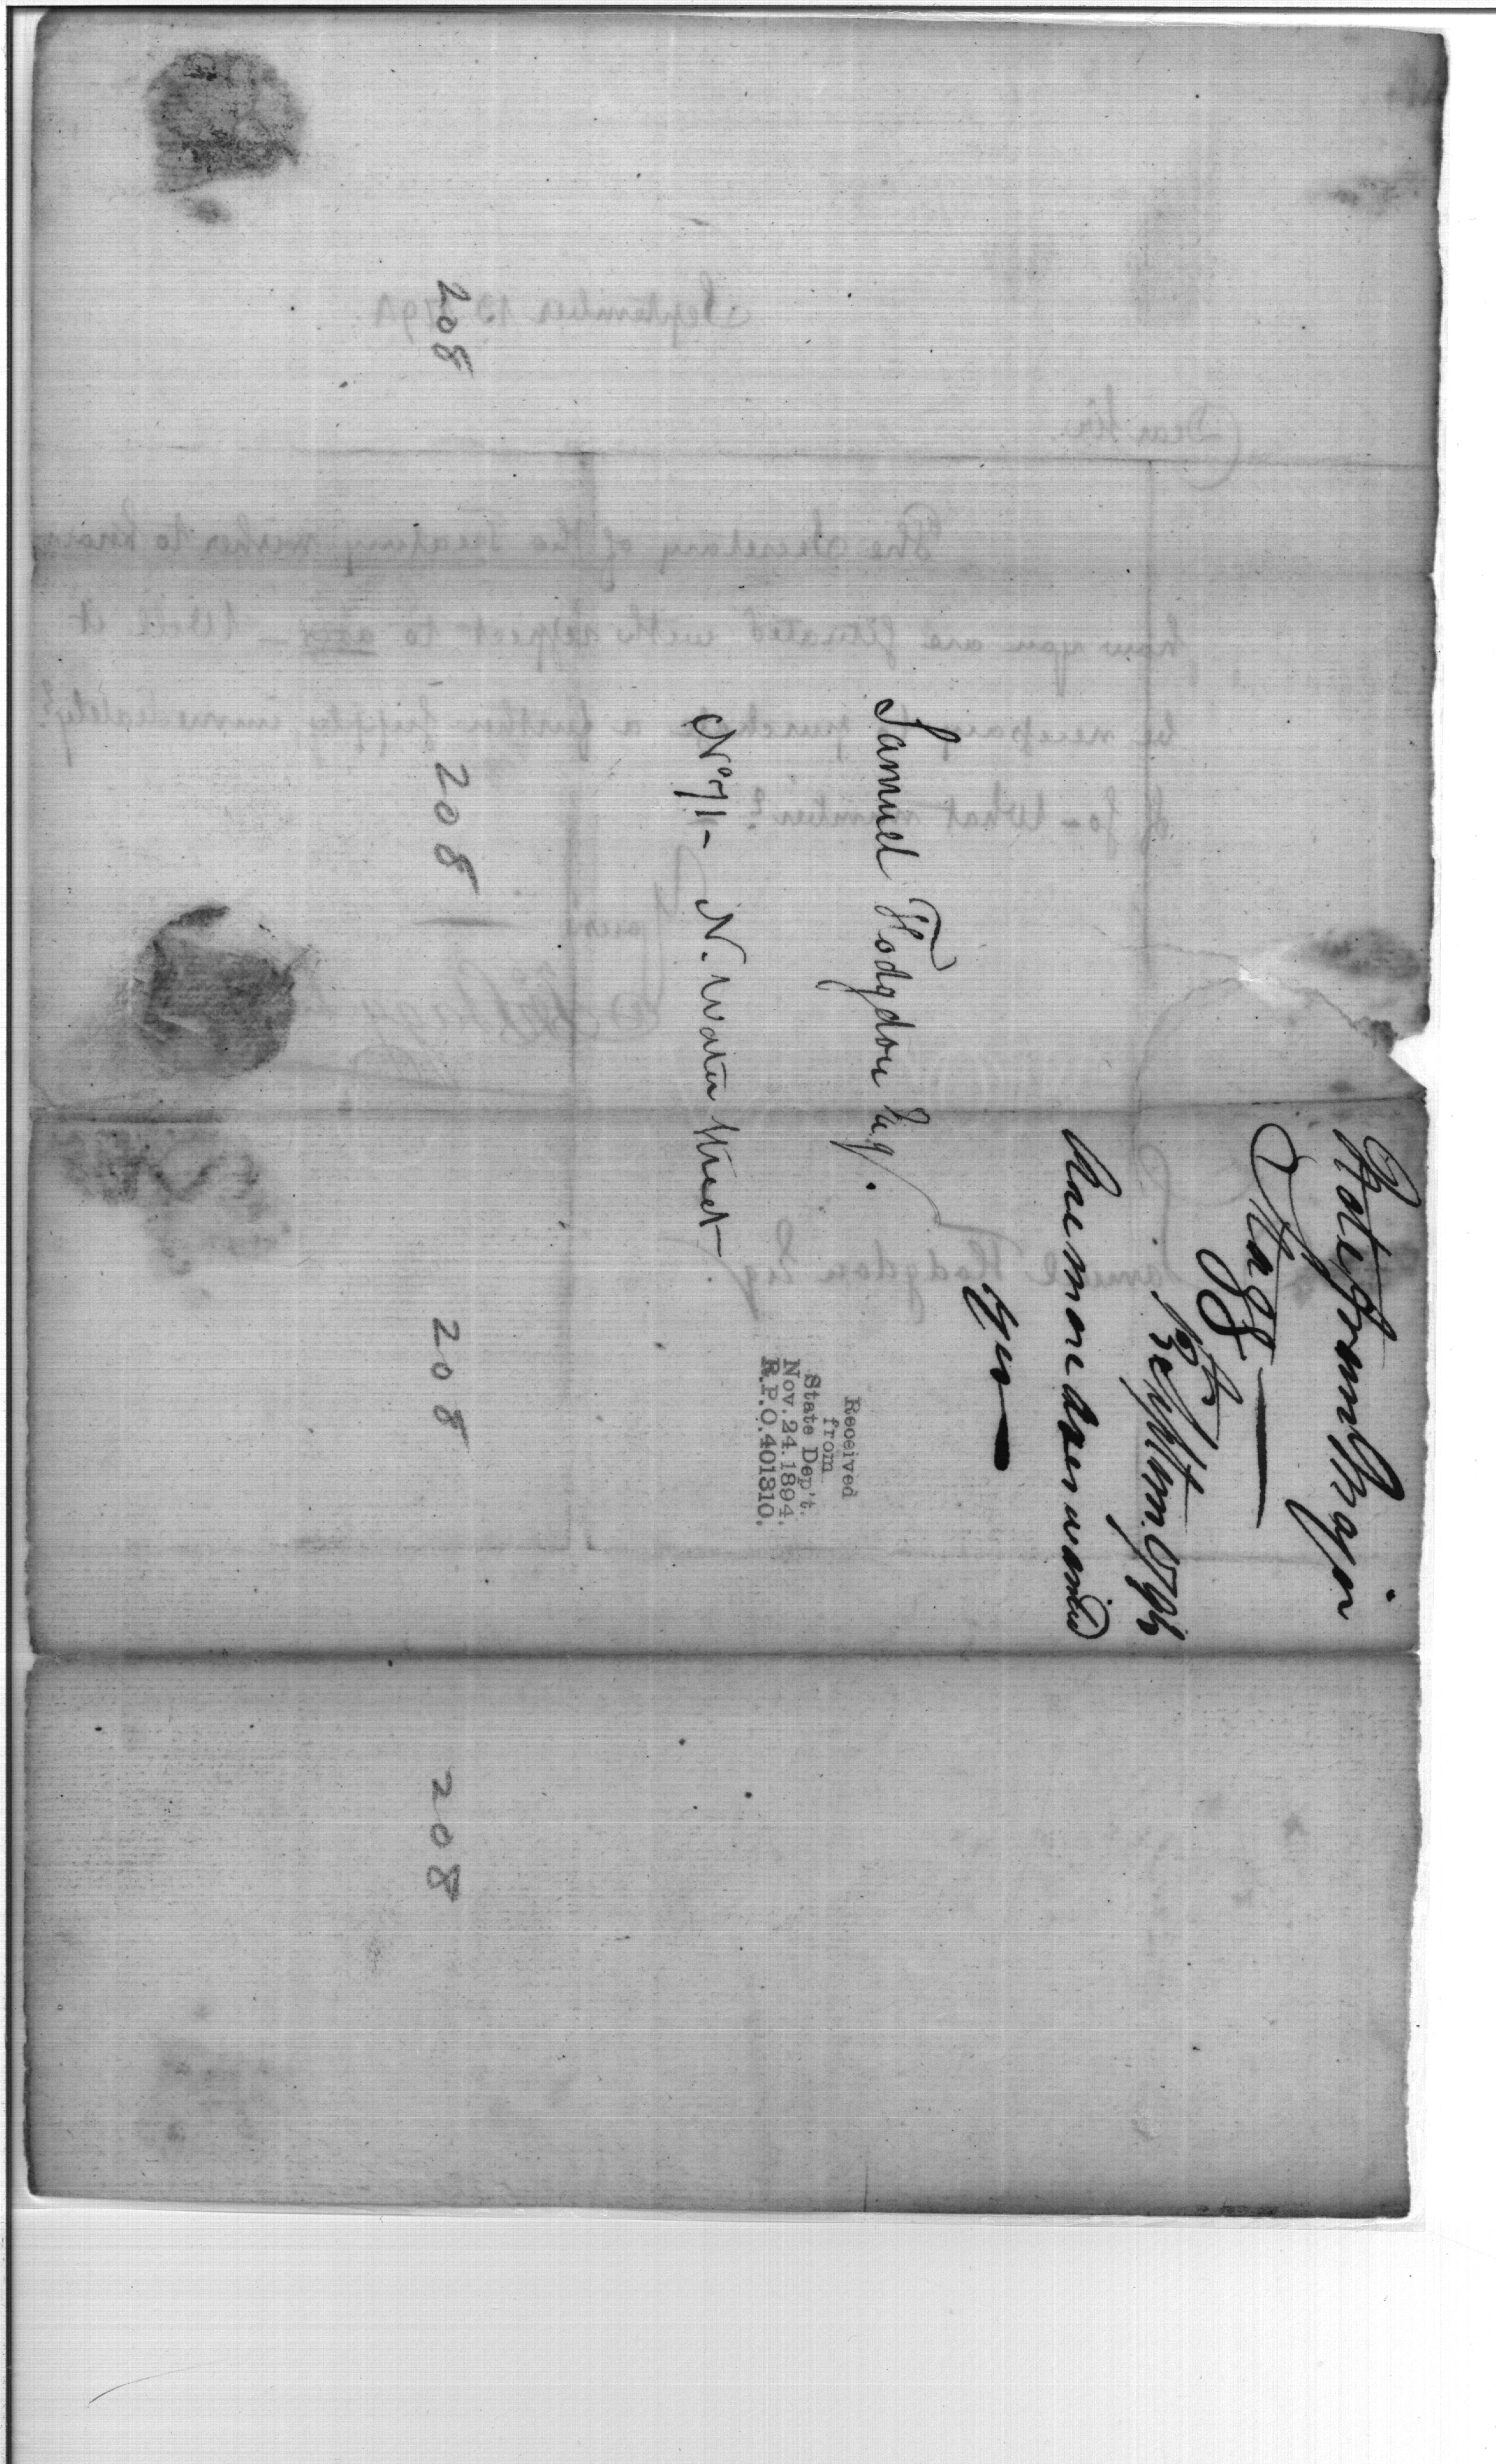 Samuel Hodgdon Esq.
No 71 - N. Water Street
Note from Major
Stagg —
13th Septem. 1794
know more axes wanted
yes —
Received
from
State Dep't.
Nov. 24. 1894.
R.P.O. 401310.
208
208 —
208
208
September 13 1794
Dear Sir.
The Secretary of the Treasury wishes to know
how you are situated with respect to axes - Will it
be necessary to purchase a further supply immediately?
If so - What number?
Yours
Samuel Hodgdon Esq.